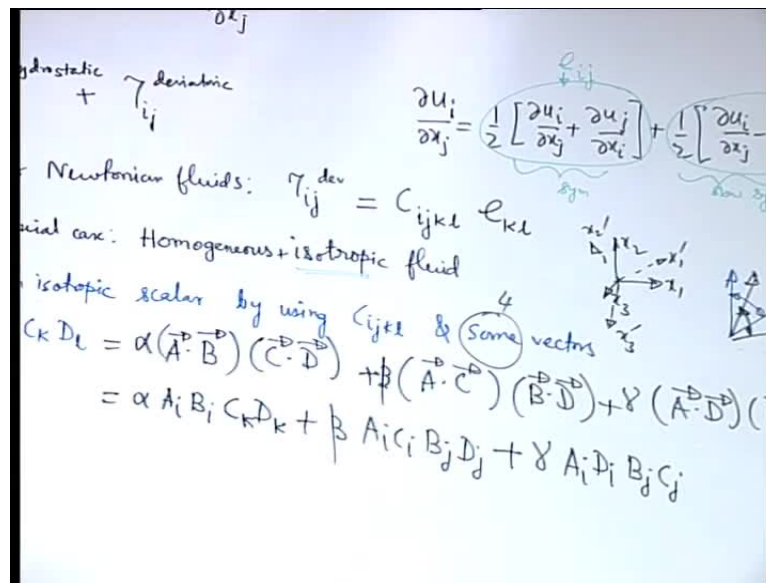 ∂xj
ydrostatic + τij^deviatoric
eij
∂ui/∂xj = 1/2 [∂ui/∂xj + ∂uj/∂xi] + 1/2 [∂ui/∂xj -
sym
Newtonian fluids: τij^dev = Cijkl ekl
cial case: Homogeneous + isotropic fluid
x2' x2 x1' x1 x3 x3'
isotopic scalar by using Cijkl & some vectors
4
Ck Dl = α(A·B)(C·D) + β(A·C)(B·D) + γ(A·D)(
= α Ai Bi Ck Dk + β Ai Ci Bj Dj + γ Ai Di Bj Cj